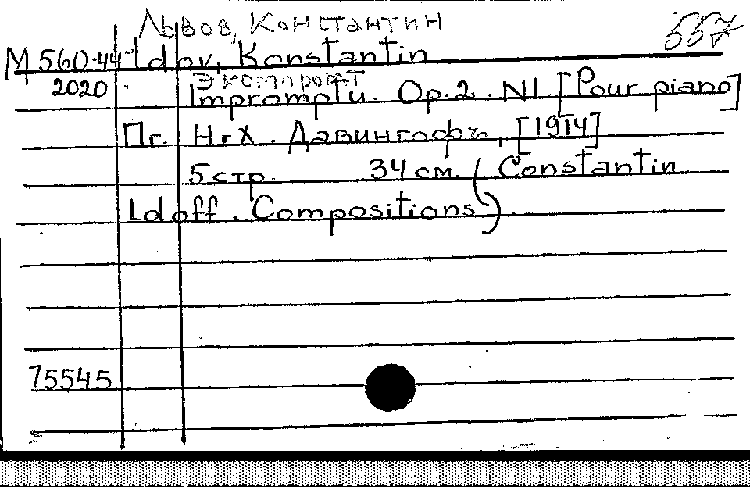 Львов, Константин 557
М 560-44 Ldov, Konstantin
2020 Экспромт
Impromptu. Op. 2. N1 [Pour piano]
Пг. Н. Х. Давингофъ, [1914]
5 стр. 34 см. (Constantin
Ldoff. Compositions).
75545